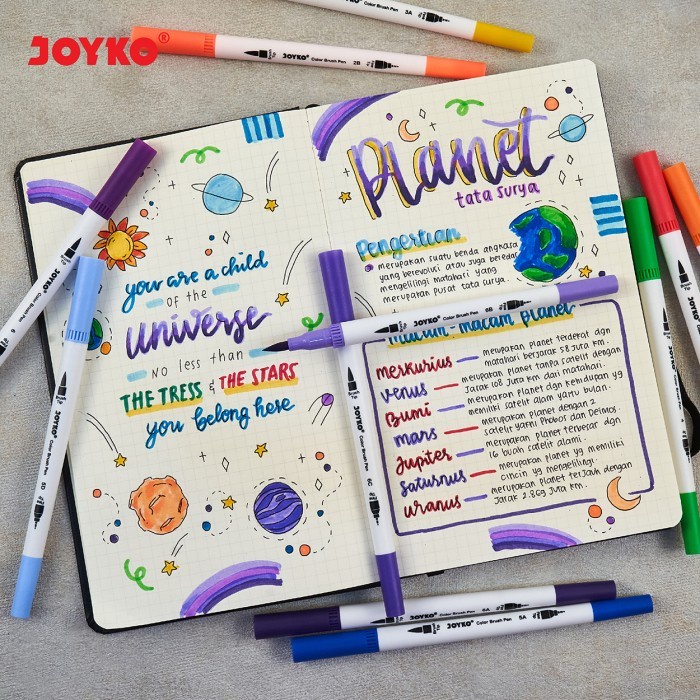 JOYKO®
JOYKO Color Brush Pen 3A
JOYKO Color Brush Pen 2B Brush Tip
you are a child
of the
universe
no less than
THE TRESS & THE STARS
you belong here
Planet
tata surya
Pengertian
merupakan suatu benda angkasa
yang berevolusi atau juga beredar
mengelilingi matahari yang
merupakan pusat tata surya.
Macam-macam planet
merkurius merupakan planet terdekat dgn
matahari berjarak 58 juta km.
venus merupakan planet tanpa satelit dengan
jarak 108 juta km dari matahari.
Bumi merupakan planet dgn kehidupan yg
memiliki satelit alam yaitu bulan.
mars merupakan planet dengan 2
satelit yaitu Phobos dan Deimos.
Jupiter merupakan planet terbesar dgn
16 buah satelit alami.
Saturnus merupakan planet yg memiliki
cincin yg mengelilingi.
uranus merupakan planet terjauh dengan
jarak 2.869 juta km.
JOYKO Color Brush Pen 6B
JOYKO Color Brush Pen 6C
Brush Tip JOYKO Color Brush Pen 5D
JOYKO Color Brush Pen 6A
JOYKO Color Brush Pen 5A